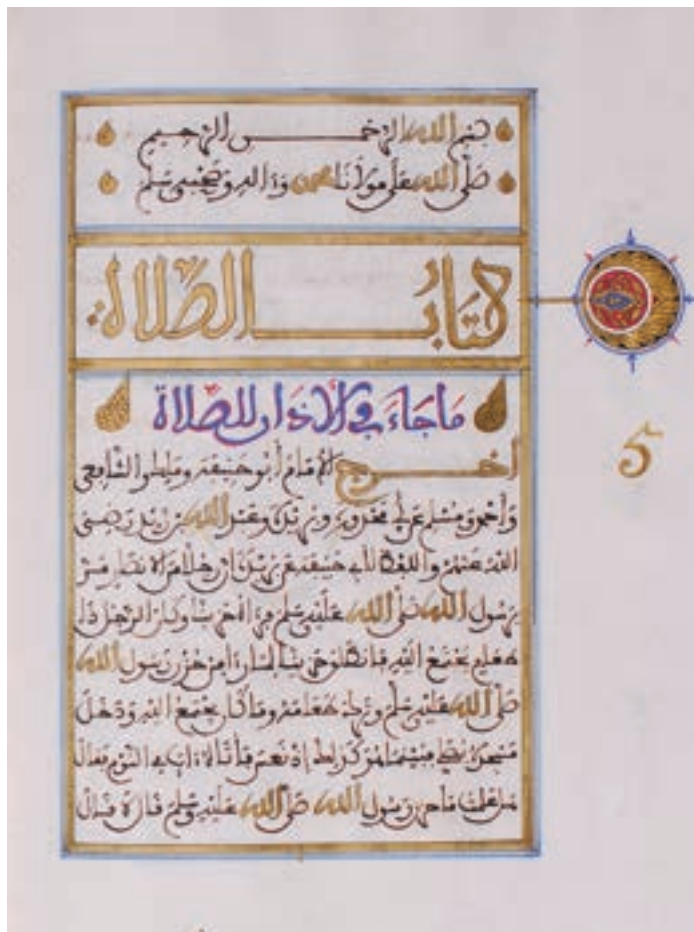 بسم الله الرحمن الرحيم
صلى الله على مولانا محمد وآله وصحبه وسلم
كتاب الصلاة
ما جاء في الأذان للصلاة
أخرج الإمام أبو حنيفة ومالك والشافعي
وأحمد ومسلم عن أبي محذورة وبريدة وعبد الله بن زيد رضي
الله عنهم واللفظ لأبي حنيفة عن بريدة أن رجلا من الأنصار مر
برسول الله صلى الله عليه وسلم فرآه حزينا وكان الرجل ذا
طعام يجتمع إليه فانطلق حزينا لما رأى من حزن رسول الله
صلى الله عليه وسلم وترك طعامه وما كان يجتمع إليه ودخل
مسجده يصلي فبينما هو كذلك إذ نعس فأتاه آت في النوم فقال
ما علمت ما حزن رسول الله صلى الله عليه وسلم قال لا قال
5